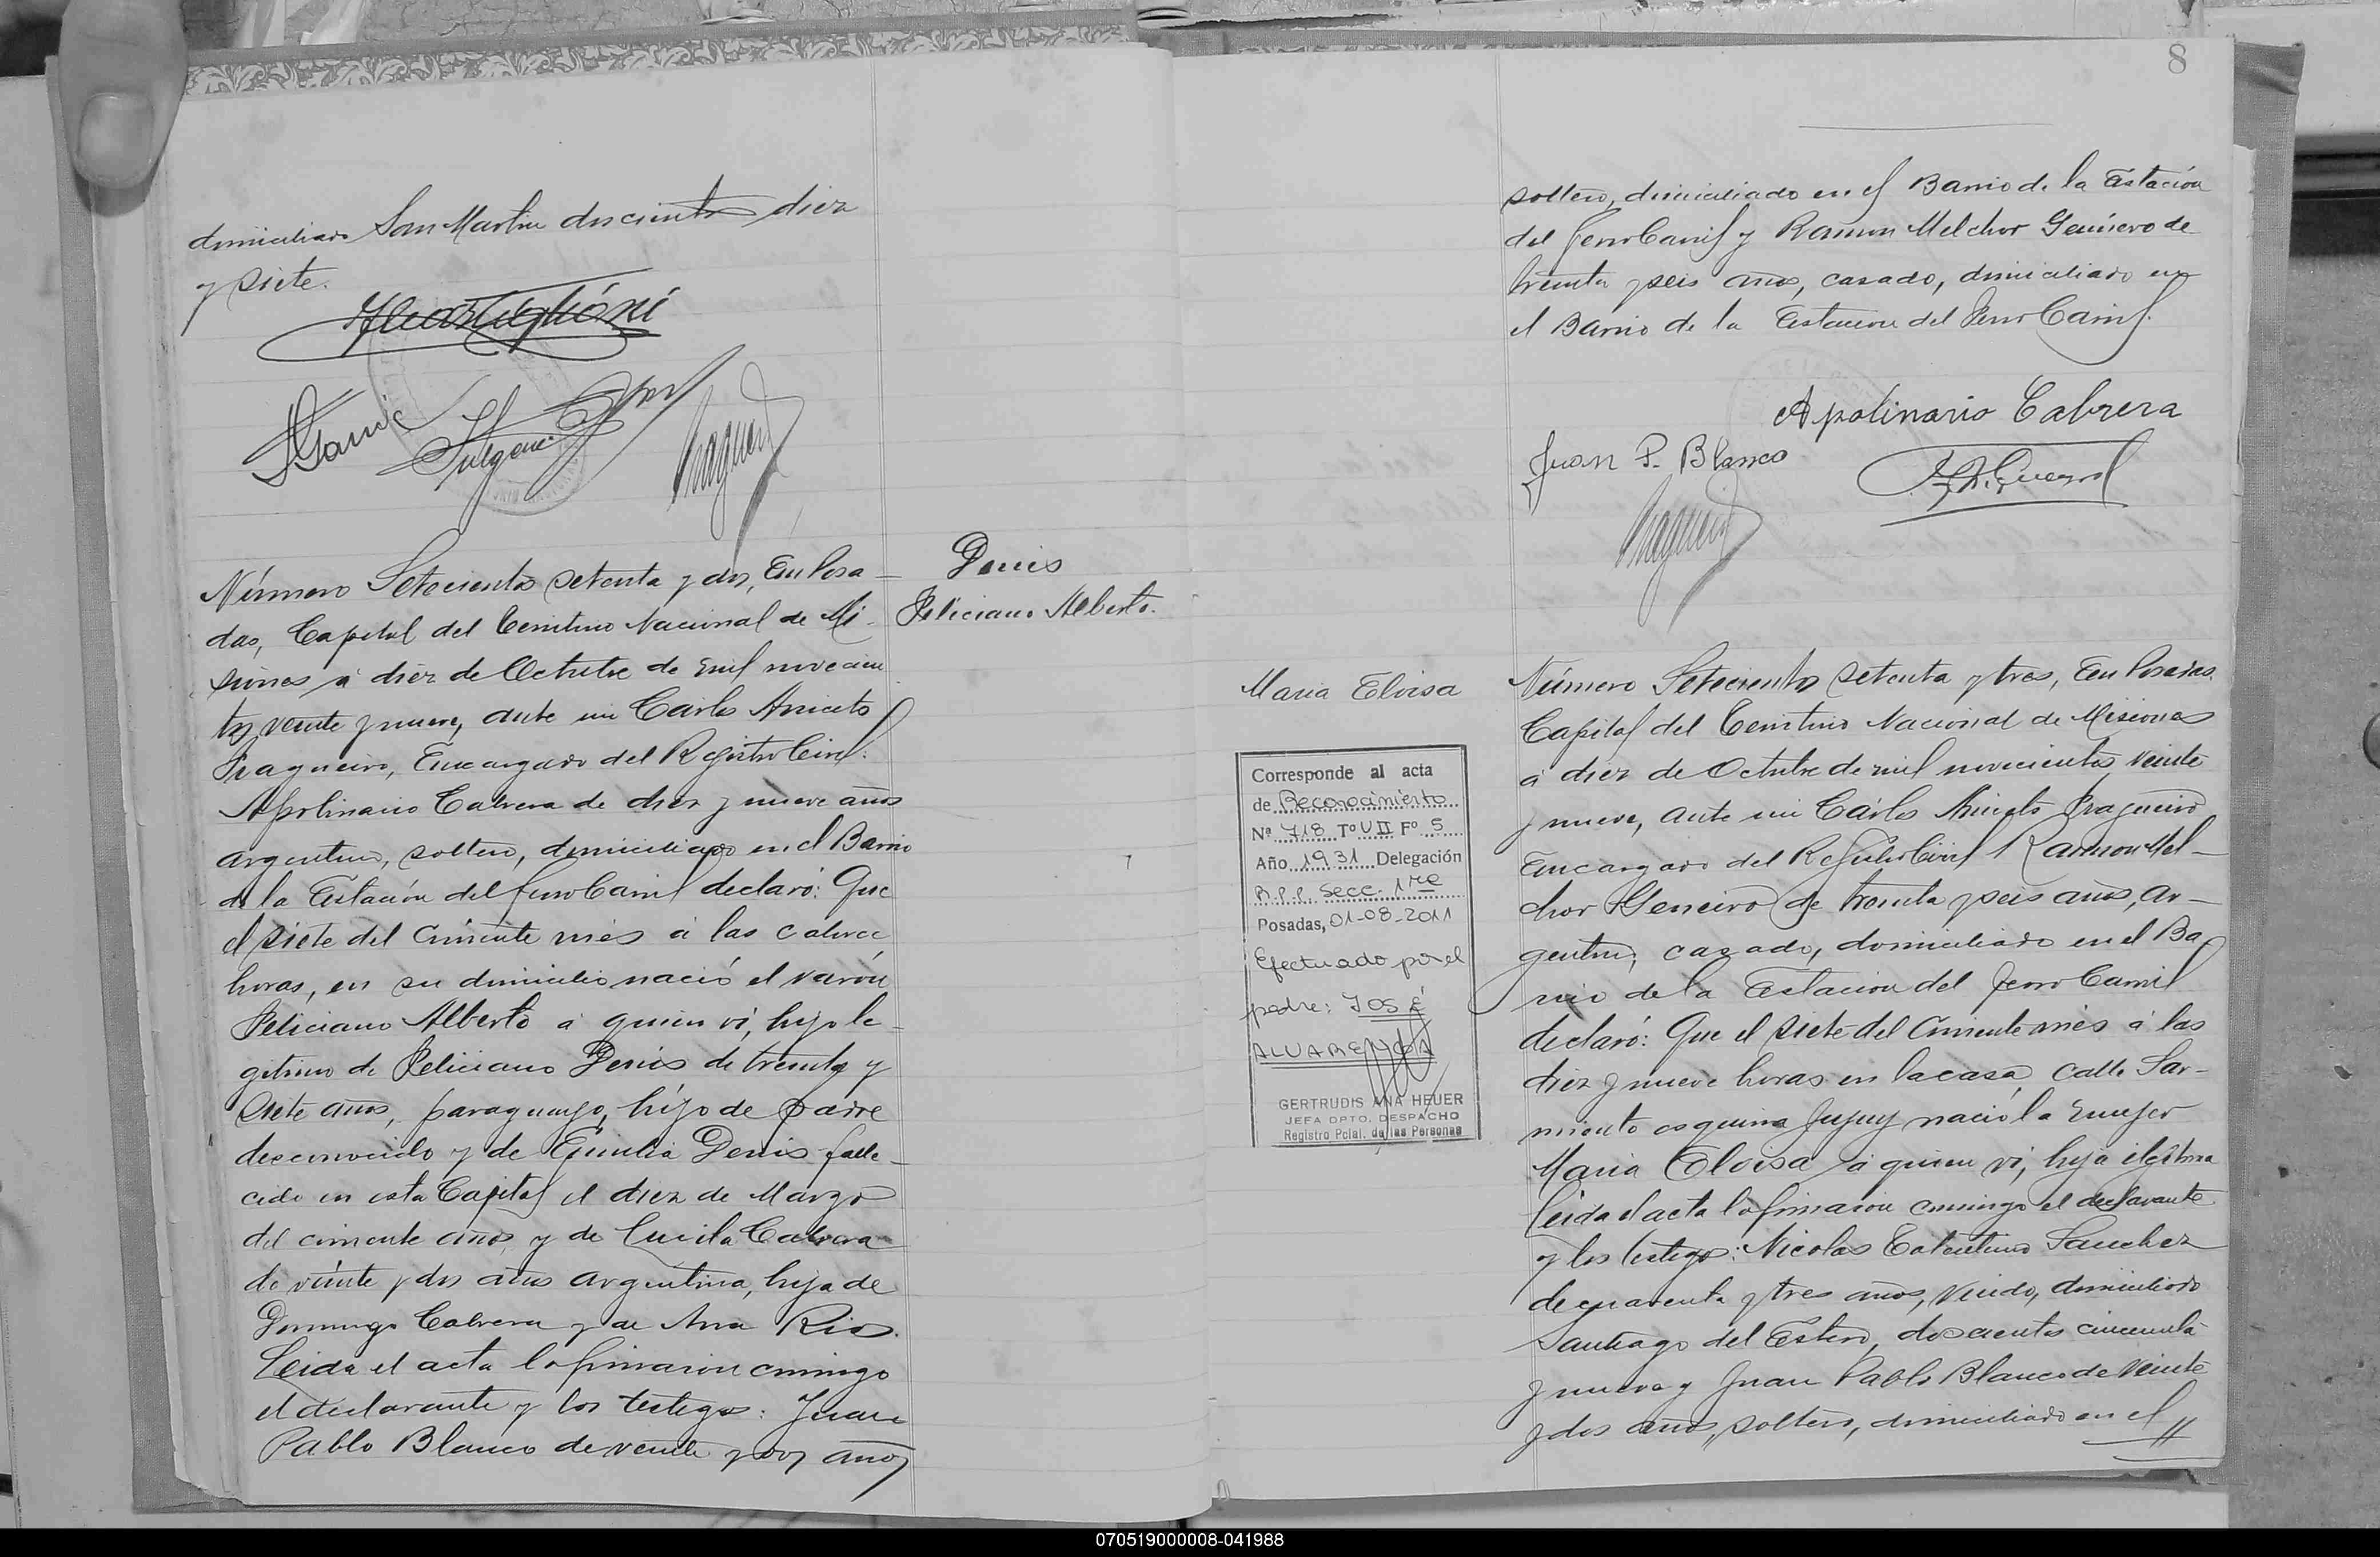 domiciliado San Martin doscientos diez
y siete.
Número Setecientos setenta y dos, En Posa-
das, Capital del Territorio Nacional de Mi-
siones á diez de Octubre de mil novecien
tos veinte y nueve, ante mi Carlos Aniceto
Fragueiro, Encargado del Registro Civil.
Apolinario Cabrera de diez y nueve años
argentino, soltero, domiciliado en el Barrio
de la Estación del ferro Carril declaró: Que
el siete del corriente mes á las catorce
horas, en su domicilio nació el varón
Feliciano Alberto á quien ví, hijo le-
gitimo de Feliciano Denis de treinta y
siete años, paraguayo, hijo de padre
desconocido y de Emilia Denis falle-
cido en esta Capital el diez de Marzo
del corriente año, y de Lucila Cabrera
de veinte y dos años argentina, hija de
Domingo Cabrera y de Ana Rios.
Leida el acta la firmaron conmigo
el declarante y los testigos: Juan
Pablo Blanco de veinte y dos años
Denis
Feliciano Alberto.
8
soltero, domiciliado en el Barrio de la Estación
del ferro Carril y Ramon Melchor Geneiro de
treinta y seis años, casado, domiciliado en
el Barrio de la Estacion del Ferro Carril.
Apolinario Cabrera
Juan P. Blanco
Maria Eloisa
Corresponde al acta
de Reconocimiento
Nº 718 Tº VII Fº 5
Año 1931 Delegación
R.P.P. Secc. 1ra
Posadas, 01-08-2011
Efectuado por el
padre: JOSÉ
ALVARENGA
GERTRUDIS ANA HEUER
JEFA DPTO. DESPACHO
Registro Pcial. de las Personas
Número Setecientos setenta y tres, En Posadas
Capital del Territorio Nacional de Misiones
á diez de Octubre de mil novecientos veinte
y nueve, ante mi Cárlos Aniceto Fragueiro
Encargado del Registro Civil Ramon Mel-
chor Geneiro de treinta y seis años, ar-
gentino, casado, domiciliado en el Ba
rrio de la Estacion del Ferro Carril
declaró: Que el siete del corriente mes á las
diez y nueve horas en la casa calle Sar-
miento esquina Jujuy nació la mujer
Maria Eloisa á quien ví, hija ilegítima
Leida el acta la firmaron conmigo el declarante
y los testigos: Nicolas Tolentino Sanchez
de cuarenta y tres años, viudo, domiciliado
Santiago del Estero, doscientos cincuenta
y nueve y Juan Pablo Blanco de veinte
y dos años, soltero, domiciliado en el //
070519000008-041988